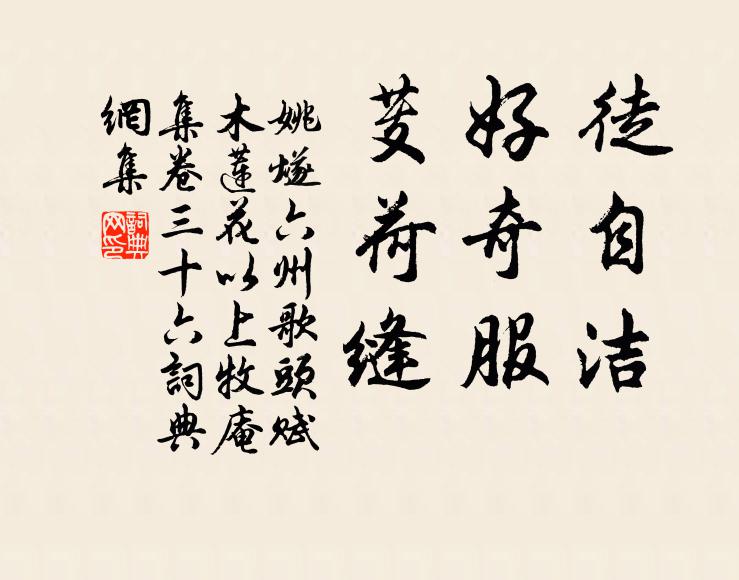 徒自洁
好奇服
芰荷缝
姚燧六州歌頭赋
木蓮花以上牧庵
集卷三十六詞典
網集
詞典网印